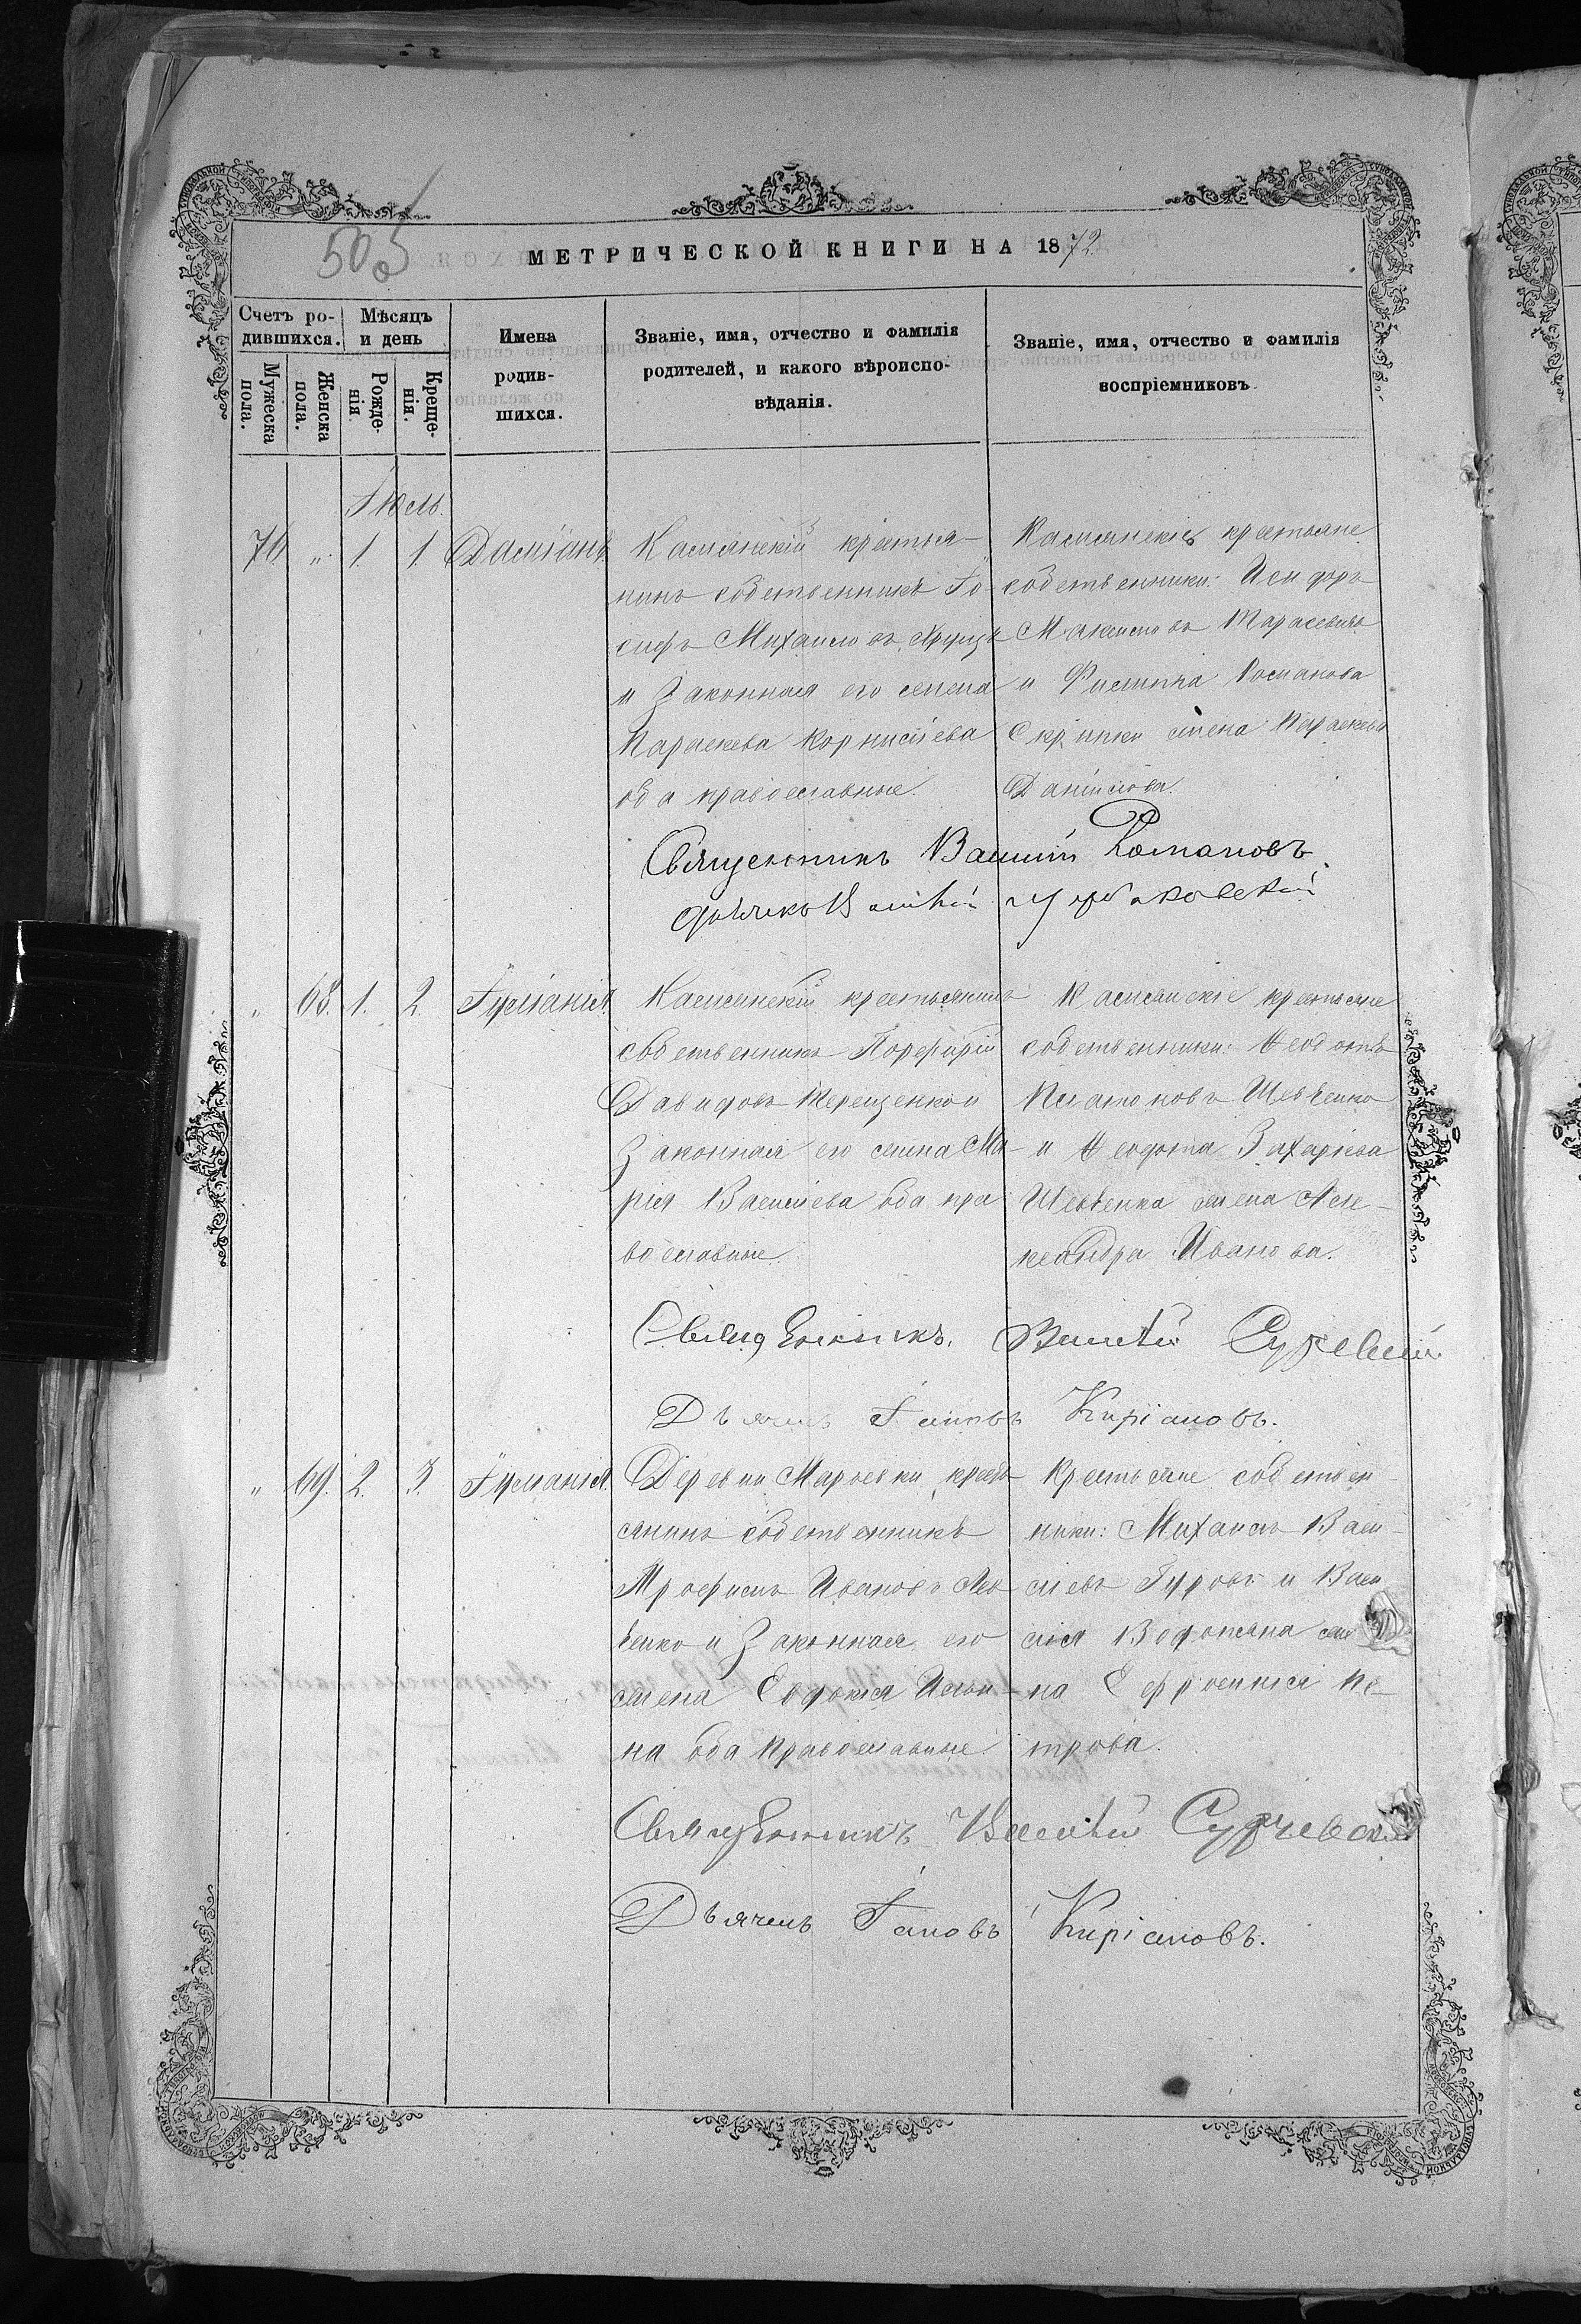 505
МЕТРИЧЕСКОЙ КНИГИ НА 1872
Счетъ ро-
дившихся.
Мужеска
пола.
Женска
пола.
Мѣсяцъ
и день
Рожде-
нія.
Креще-
нія.
Имена
родив-
шихся.
Званіе, имя, отчество и фамилія
родителей, и какого вѣроиспо-
вѣданія.
Званіе, имя, отчество и фамилія
воспріемниковъ.
Іюль.
70 " 1. 1. Даміанъ
крестья-
нинъ собственникъ Іо
сифъ Михаиловъ
и законная его жена
Параскева Корниліева
оба православные.
крестьяне
собственники: Исидоръ
Тарасевичъ
и Филиппа Романова
жена Параскева
Даніилова.
Священникъ Романовъ
" 68. 1. 2. Іуліанія
крестьянинъ
собственникъ Порфирій
Давидовъ Терещенко и
законная его жена Ма-
рія Василіева оба пра
вославные.
крестьяне
собственники: Ѳеодотъ
Платоновъ Шевченко
и Ѳеодота Захаріева
Шевченка жена Алек-
сандра Иванова.
Священникъ Василій
Дьячекъ Киріановъ.
" 69. 2. 3. Іуліанія
Деревни Марьевки крест
янинъ собственникъ
Трофимъ Ивановъ Лев
ченко и законная его
жена Евдокія Ильи-
на оба православные.
Крестьяне собствен-
ники: Михаилъ Васи-
ліевъ Гуровъ и Васи
лія Водопьяна же
на Ефросинія Пе-
трова.
Священникъ Василій
Дьячекъ Киріановъ.